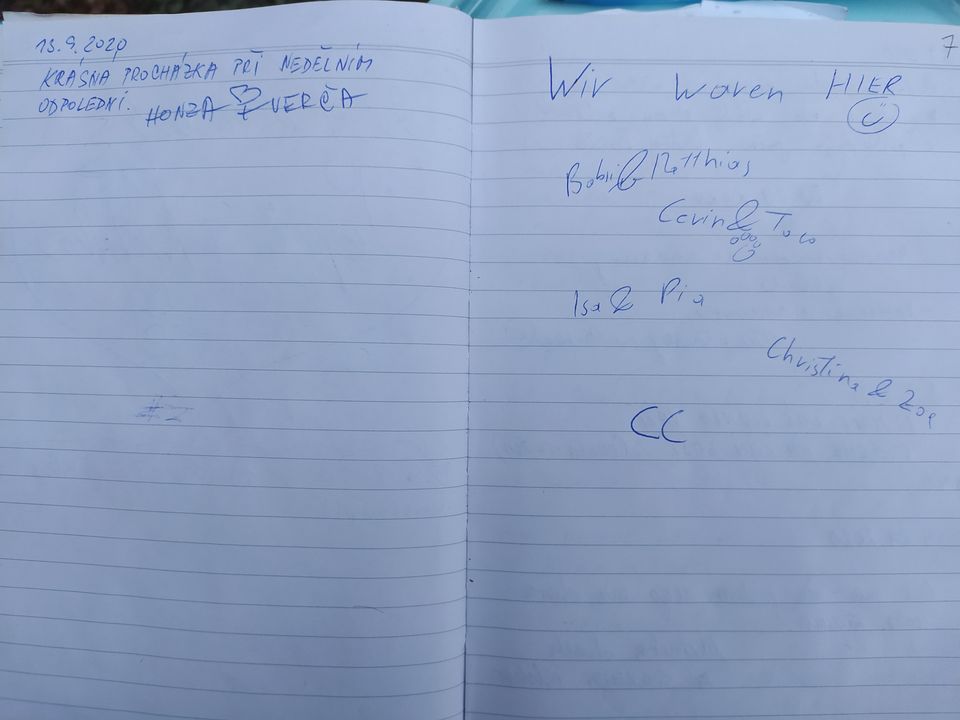 13.9.2020
KRÁSNÁ PROCHÁZKA PŘI NEDĚLNÍM
ODPOLEDNÍ.
HONZA VERČA
7
Wir waren HIER
& Matthias
& Toco
Isa & Pia
Christina & Zoe
CC